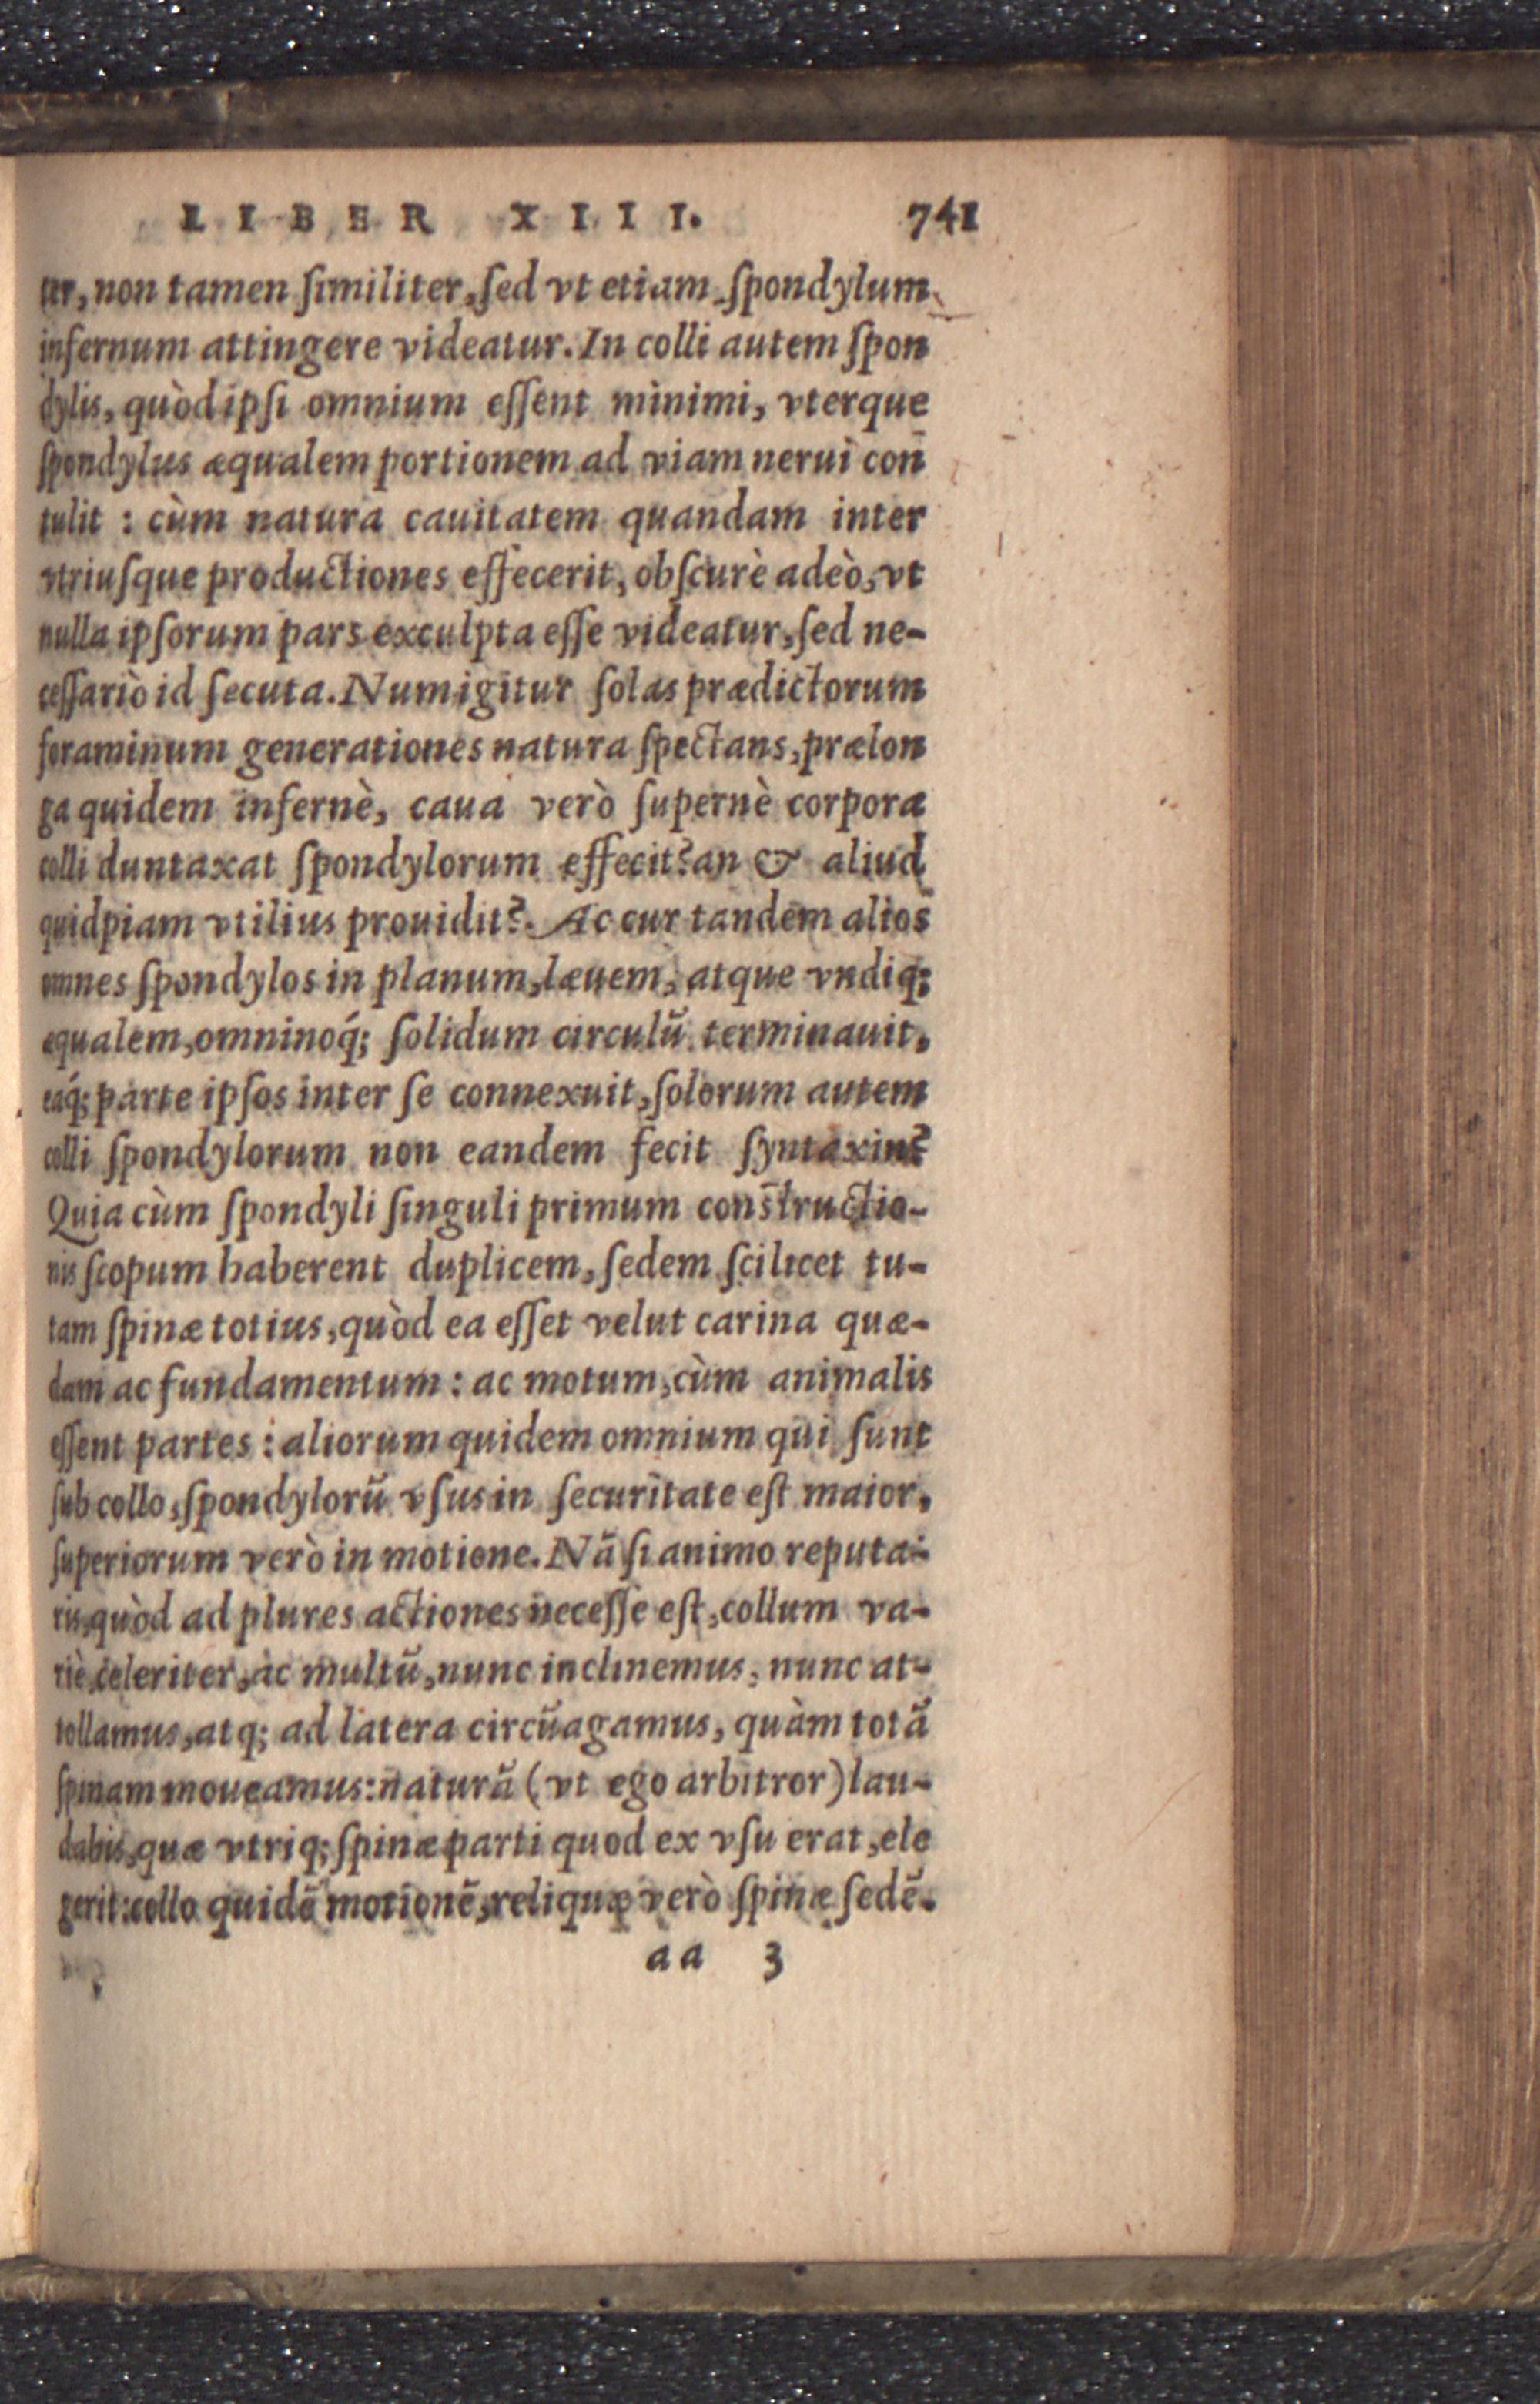 LIBER XIII. 741
tur, non tamen ſimiliter, ſed vt etiam ſpondylum
infernum attingere videatur. In colli autem ſpon
dylis, quòd ipſi omnium eſſent minimi, vterque
ſpondylus æqualem portionem ad viam nerui con
tulit : cùm natura cauitatem quandam inter
vtriuſque productiones effecerit, obſcurè adeò, vt
nulla ipſorum pars exculpta eſſe videatur, ſed ne-
ceſſariò id ſecuta. Num igitur ſolas prædictorum
foraminum generationes natura ſpectans, prælon
ga quidem infernè, caua verò ſupernè corpora
colli duntaxat ſpondylorum effecit? an & aliud
quidpiam vtilius prouidit? Ac cur tandem alios
omnes ſpondylos in planum, læuem, atque vndiq;
æqualem, omninoq́; ſolidum circulū terminauit,
eaq́; parte ipſos inter ſe connexuit, ſolorum autem
colli ſpondylorum non eandem fecit ſyntaxin?
Quia cùm ſpondyli ſinguli primum constructio-
nis ſcopum haberent duplicem, ſedem ſcilicet tu-
tam ſpinæ totius, quòd ea eſſet velut carina quæ-
dam ac fundamentum : ac motum, cùm animalis
eſſent partes : aliorum quidem omnium qui ſunt
ſub collo, ſpondylorū vſus in ſecuritate eſt maior,
ſuperiorum verò in motione. Nā ſi animo reputa-
ris, quòd ad plures actiones neceſſe eſt, collum va-
riè, celeriter, ac multū, nunc inclinemus, nunc at-
tollamus, atq; ad latera circūagamus, quàm totā
ſpinam moueamus: naturā (vt ego arbitror) lau-
dabis, quæ vtriq; ſpinæ parti quod ex vſu erat, ele
gerit: collo quidē motionē, reliquæ verò ſpinæ ſedē.
aa 3